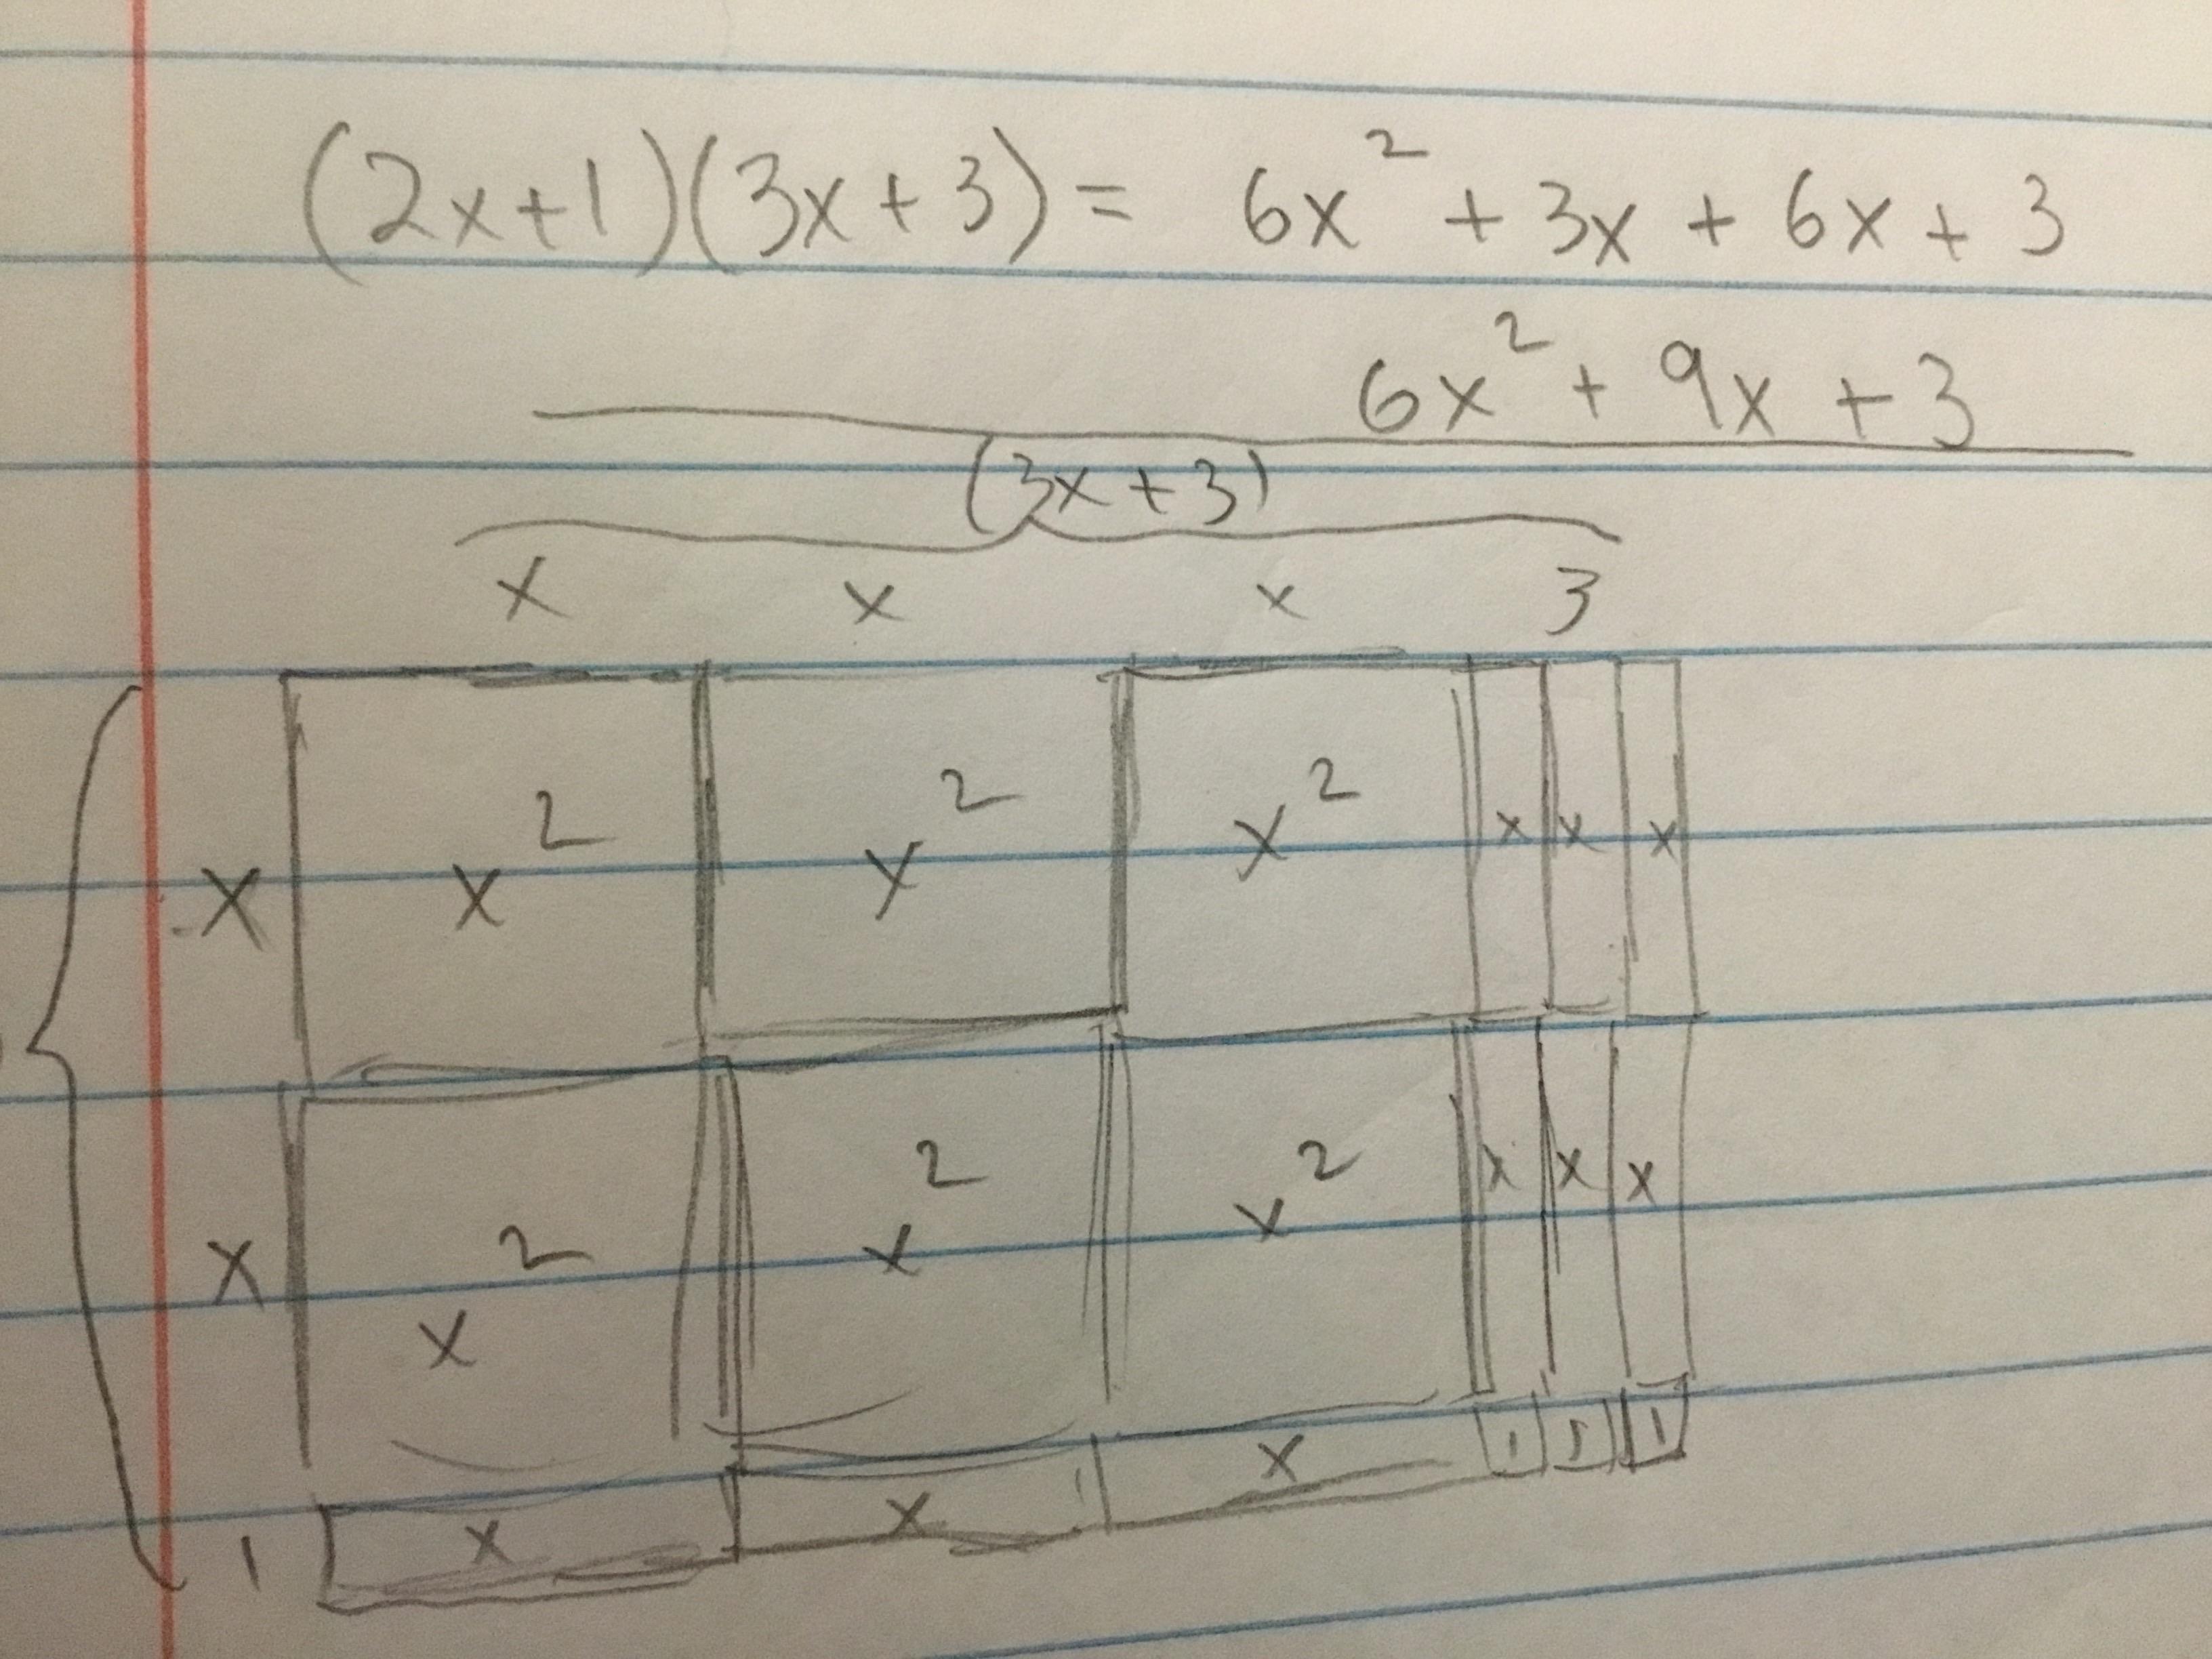 (2x+1)(3x+3) = 6x² + 3x + 6x + 3
6x² + 9x + 3
(3x+3)
x x x 3
x x² x² x² x x x
x x² x² x² x x x
1 x x x 1 1 1